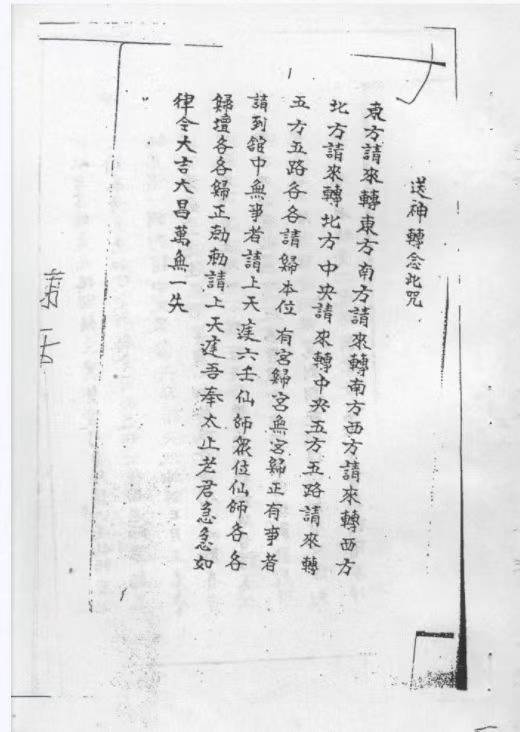 送神轉念此咒
東方請來轉東方南方請來轉南方西方請來轉西方
北方請來轉北方中央請來轉中央五方五路請來轉
五方五路各各請歸本位有宮歸宮無宮歸正有事者
請到舘中無事者請上天𨑳六壬仙師衆位仙師各各
歸壇各各歸正勅勅請上天𨑳吾奉太上老君急急如
律令大吉大昌萬無一失